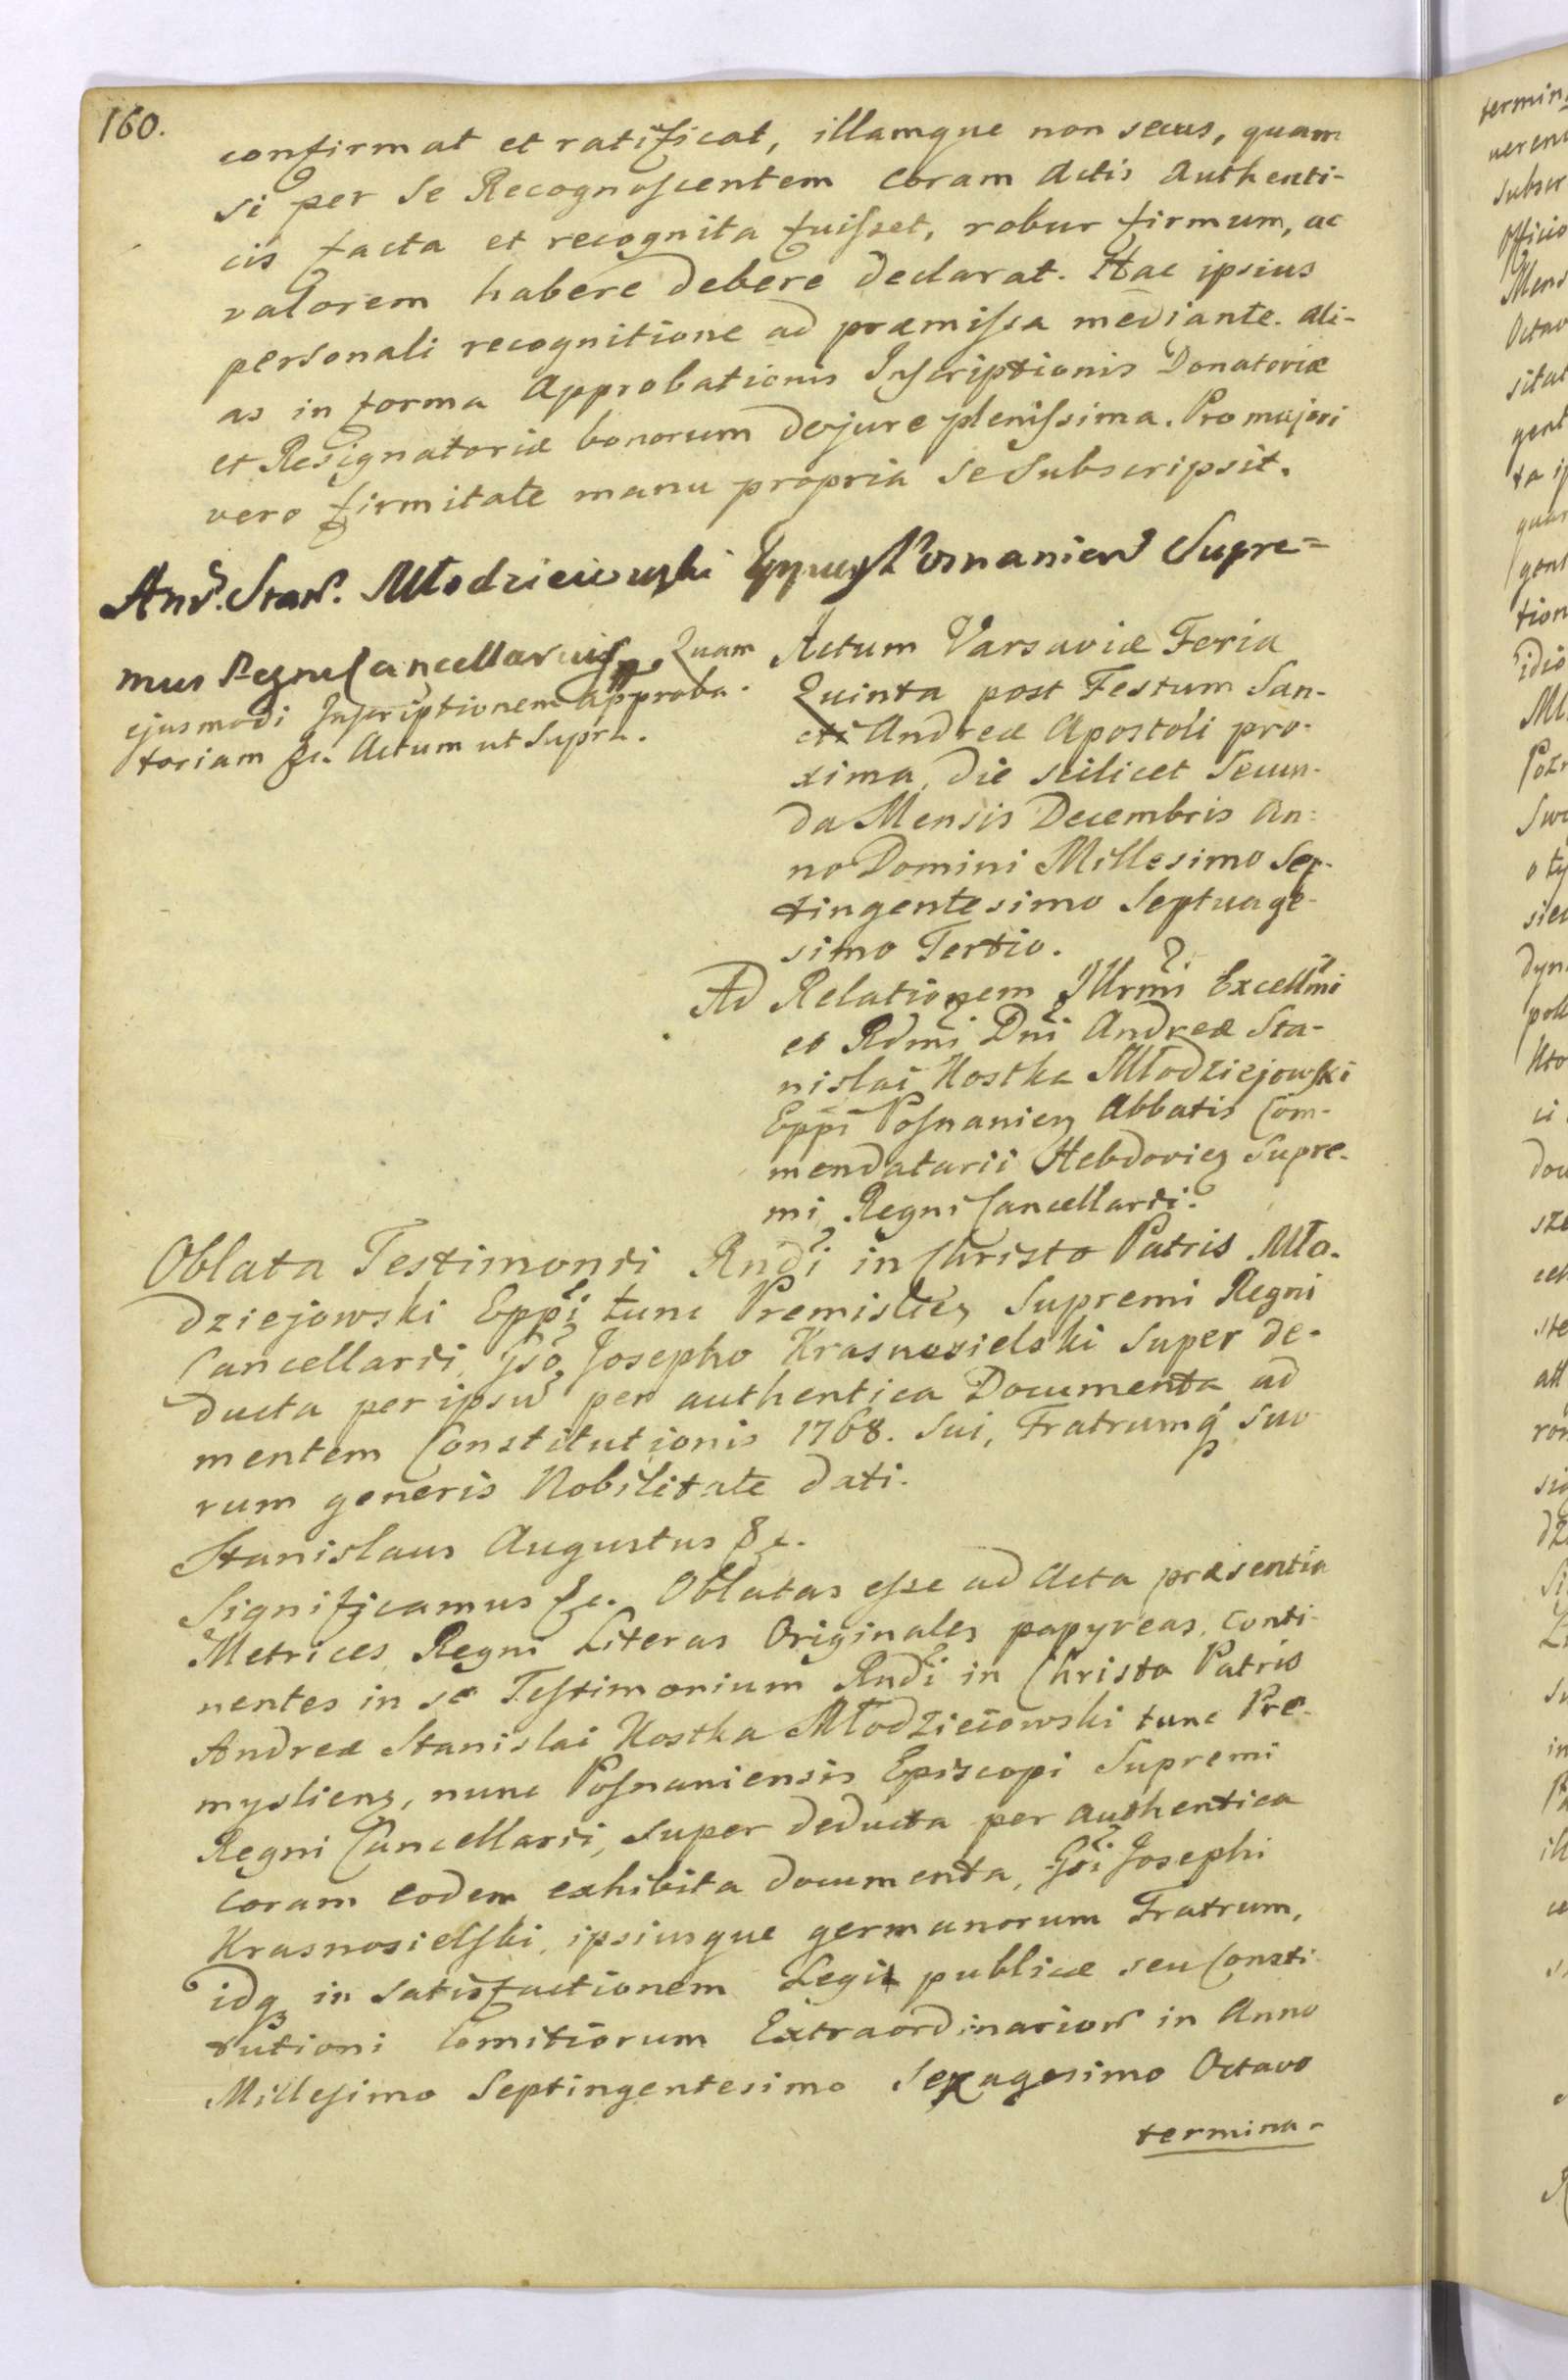 160.
confirmat et ratificat, illamque non secus, quam
si per se Recognoscentem coram Actis Authenti-
cis facta et recognita fuisset, robur firmum, ac
valorem habere debere declarat. Hac ipsius
personali recognitione ad præmissa mediante. Ali-
as in forma Approbationis Inscriptionis Donatoriæ
et Resignatoriæ bonorum dejure plenissima. Pro majori
vero firmitate manu propria se subscripsit.
Andr. Stan. Młodzieiewski Eppus Posnanien Supre=
mus Regni Cancellarius Quam
ejusmodi Inscriptionem Approba-
toriam &c. Actum ut supra.
Actum Varsaviæ Feria
Quinta post Festum San-
cti Andreæ Apostoli pro-
xima, die scilicet Secun-
da Mensis Decembris An-
no Domini Millesimo Sep-
tingentesimo Septuage-
simo Tertio.
Ad Relationem Illrmi Excellmi
et Rdmi Dni Andreæ Sta-
nislai Kostka Młodziejowski
Eppi Posnanien Abbatis Com-
mendatarii Hebdovien Supre-
mi Regni Cancellarii.
Oblata Testimonii Rndi in Christo Patris Mło-
dziejowski Eppi tunc Premislien Supremi Regni
Cancellarii, Gso Josepho Krasnosielski super de-
ducta per ipsu per authentica Documenta ad
mentem Constitutionis 1768. sui, Fratrumq suo
rum generis Nobilitate dati.
Stanislaus Augustus &c.
Significamus &c. Oblatas esse ad Acta præsentia
Metrices Regni Literas Originales papyreas, conti-
nentes in se Testimonium Rndi in Christo Patris
Andreæ Stanislai Kostka Młodzieiowski tunc Pre-
myslien, nunc Posnaniensis Episcopi Supremi
Regni Cancellarii, super deducta per authentica
coram eodem exhibita documenta, Gsi Josephi
Krasnosielski, ipsiusque germanorum Fratrum,
idq in satisfactionem Legis publicæ seu Consti-
tutioni Comitiorum Extraordinarior in Anno
Millesimo Septingentesimo Sexagesimo Octavo
termina-